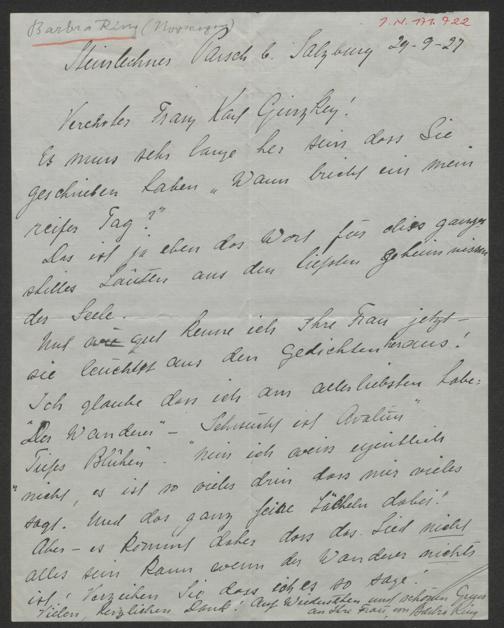 Barbra Ring (Norwegen)
I.N. 171.922
Steinlechner Parsch b. Salzburg 29-9-27
Verehrter Franz Karl Ginzkey!
Es muss sehr lange her sein dass Sie
geschrieben haben „Wann bricht ein mein
reifer Tag?"
Das ist ja eben das Wort für dies ganze
stilles Läuten aus den tiefsten Geheimnissen
der Seele.
Und wie gut kenne ich Ihre Frau jetzt –
sie leuchtet aus den Gedichten heraus!
Ich glaube dass ich am allerliebsten habe:
"Der Wanderer" – Sehnsucht ist Avalun"
Tiefes Blühen". "Nun ich weiss eigentlich
"nicht, es ist so vieles drin dass mir vieles
sagt. Und das ganz feine Lächeln dabei!
Aber – es kommt daher dass das Lied nicht
alles sein kann wenn der Wanderer nichts
ist! Verzeihen Sie dass ich es so sage!
Vielen, herzlichen Dank! Auf Wiedersehen und schönen Gruss
an Ihre Frau, von Barbra Ring